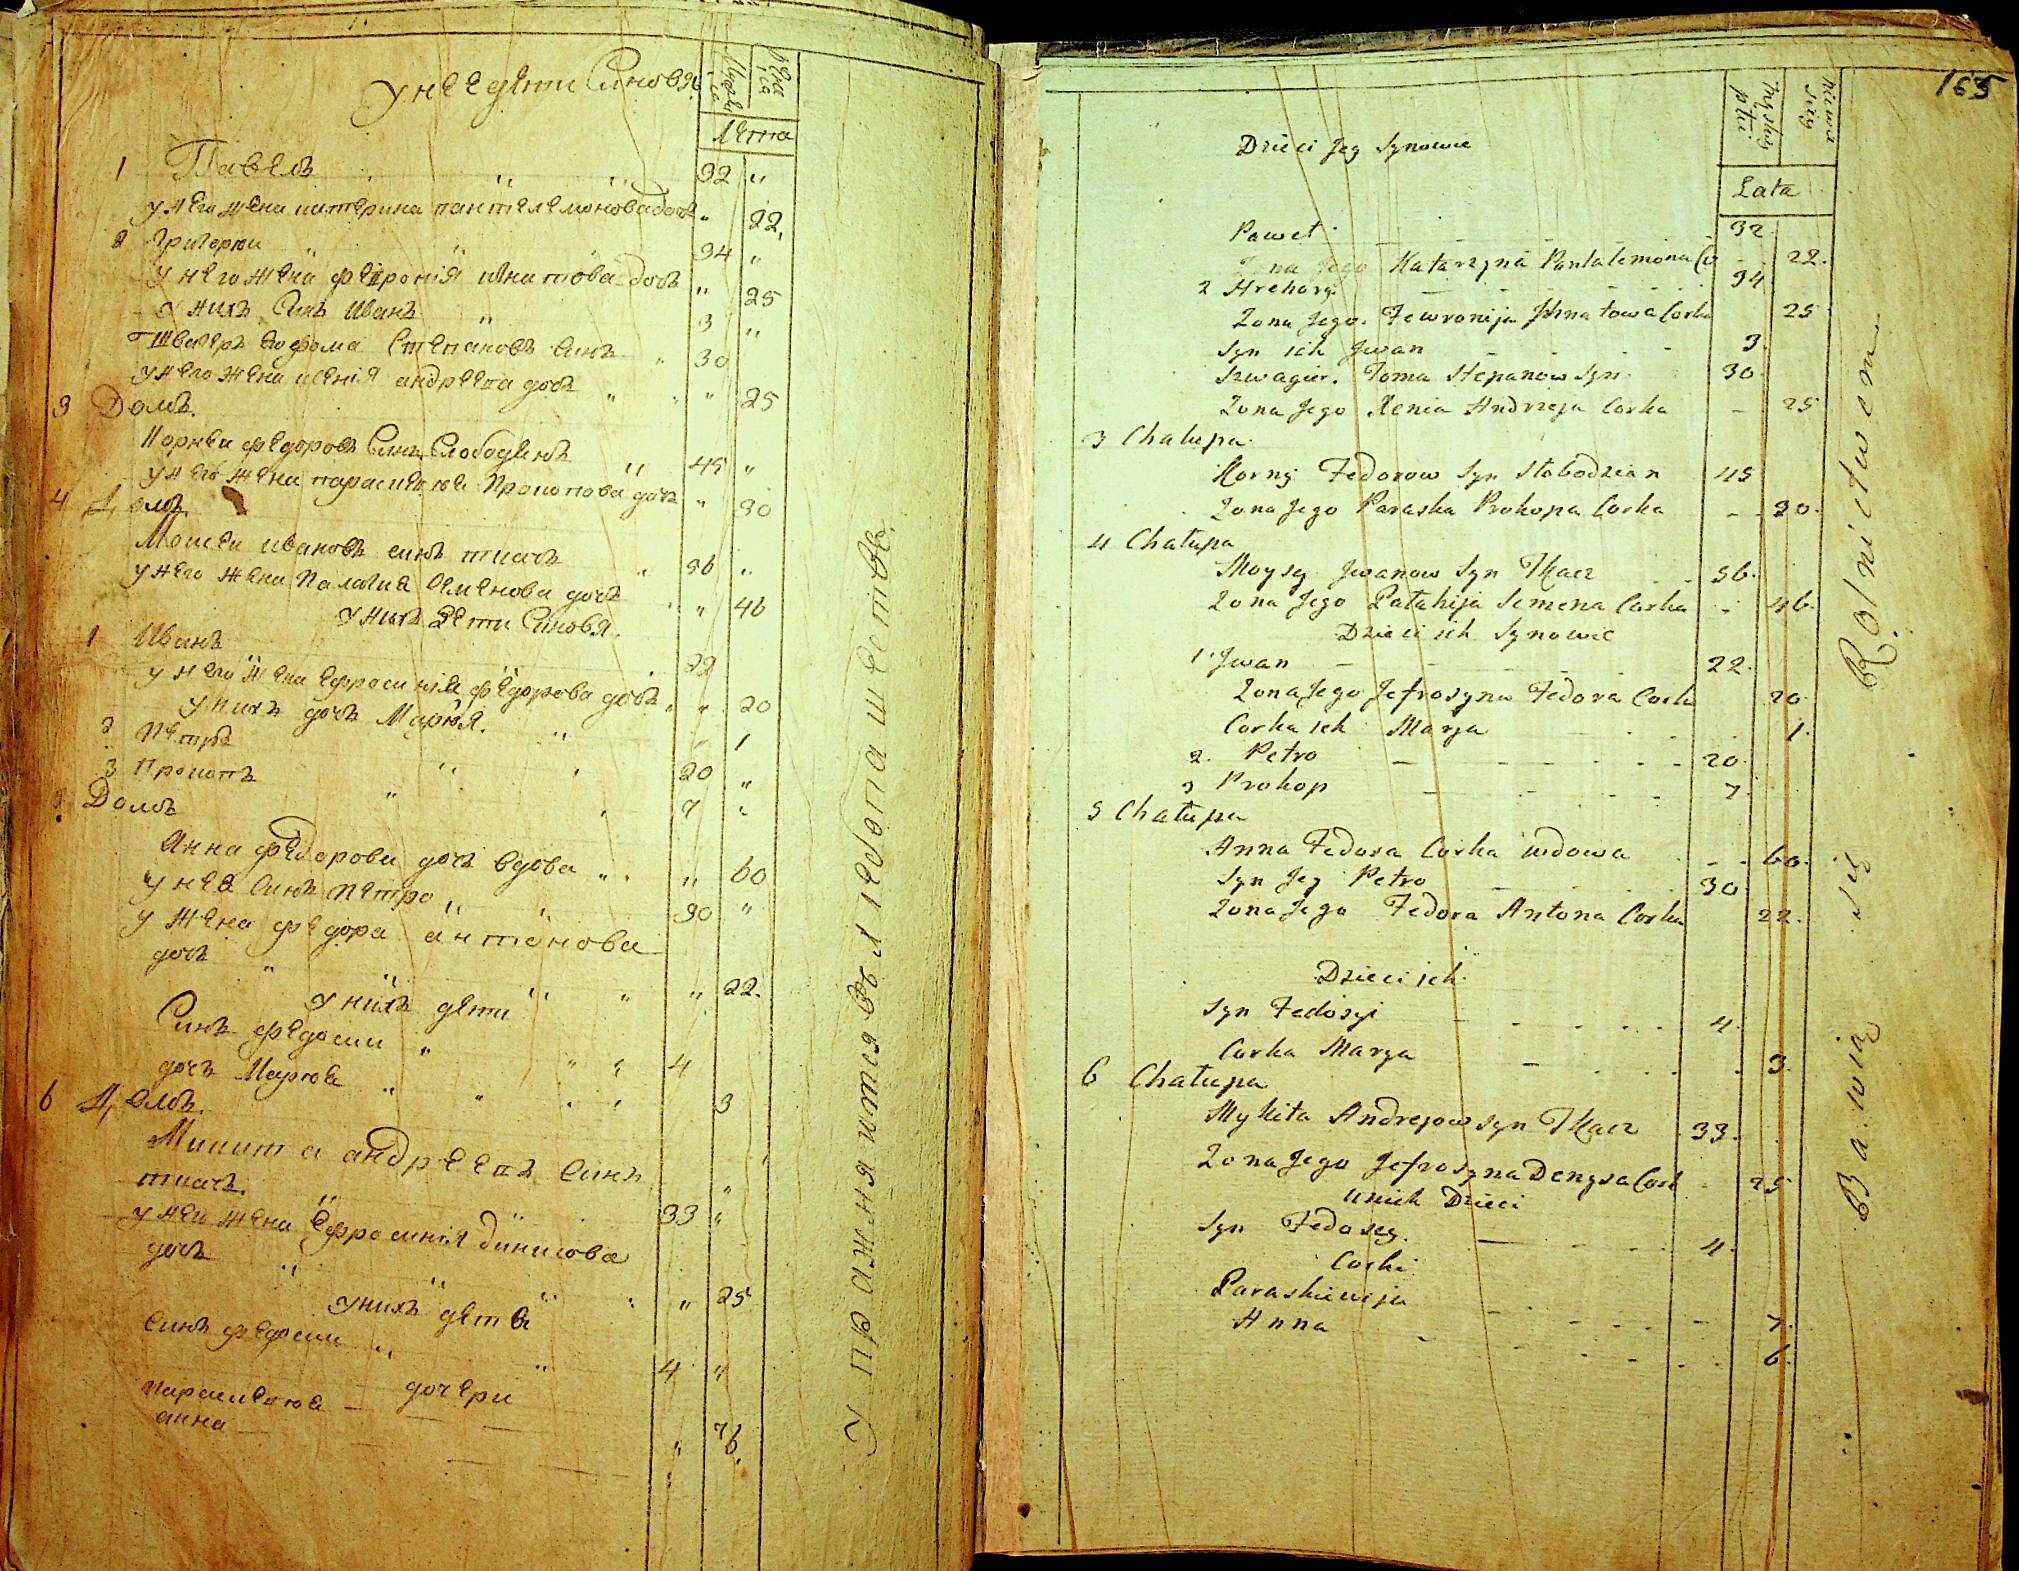 у нее дети Синовя
Лета
1 Павелъ 32 "
у него жена катерина пантелемонова дочь " 22
2 Григореи 34 "
у него жена февронія игнатова дочь " 25
у нихъ Синъ Иванъ 3 "
Швагеръ его фома Степановъ Синъ 30
у него жена ксенія андреева дочь " 25
3 Домъ.
Корнеи федоровъ Синъ Слободянъ 45 "
у него жена параскевия Прокопова дочь " 30
4 Домъ
Моисеи ивановъ синъ ткачъ 56 "
у него жена Палагия Семенова дочь " 46
у нихъ дети Синовя.
1 Иванъ 22
у него жена ефросинія федорова дочь " 20
у нихъ дочь Марія. " 1
2 Петръ 20 "
3 Прокопъ 7 "
5 Домъ
Анна федорова дочь вдова " 60
у нея Синъ петро 30 "
у жена федора антонова
дочь " 22.
у нихъ дети
Синъ федосии 4
дочь Мария 3
6 Домъ.
Микита андреевъ синъ "
ткачъ. 33 "
у неи жена ефросинія динисова
дочь " 25
у нихъ дети
синъ федосии 4 "
дочери
параскевия — 7
анна — " 6.
Упражняитця въ хлебопашестве
165
męskiej płci
niewieściej
Dzieci Jey Synowie
Lata
Paweł 32
Zona Jego Katarzyna Pantalemona Co 22.
2 Hrehory 34
Zona Jego. Fewronija Jhnatowa Corka 25
Syn ich Jwan 3.
Szwagier. Foma Stepanow Syn 30.
Zona Jego Xenia Andrzeja Corka - 25
3 Chałupa.
Korny Fedorow Syn Słobodzian 45
Zona Jego Paraska Prokopa Corka - . 30.
4 Chałupa
Moysey Jwanow Syn Tkacz 56.
Zona Jego Pałahija Semena Corka - 46.
Dzieci ich Synowie
1. Jwan 22.
Zona Jego Jefrosyna Fedora Corka 20
Corka ich Marya 1.
2. Petro 20.
3 Prokop 7.
5 Chałupa
Anna Fedora Corka wdowa 60.
Syn Jey Petro 30
Zona Jego Fedora Antona Corka 22.
Dzieci ich.
Syn Fedosyi 4.
Corka Marya 3.
6 Chałupa
Mykita Andrejow Syn Tkacz 33.
Zona Jego Jefrosyna Denysa Cork 25
unich Dzieci
Syn Fedosey. 4.
Corki
Paraskiewija 7.
Anna 6.
Bawią się Rolnictwem